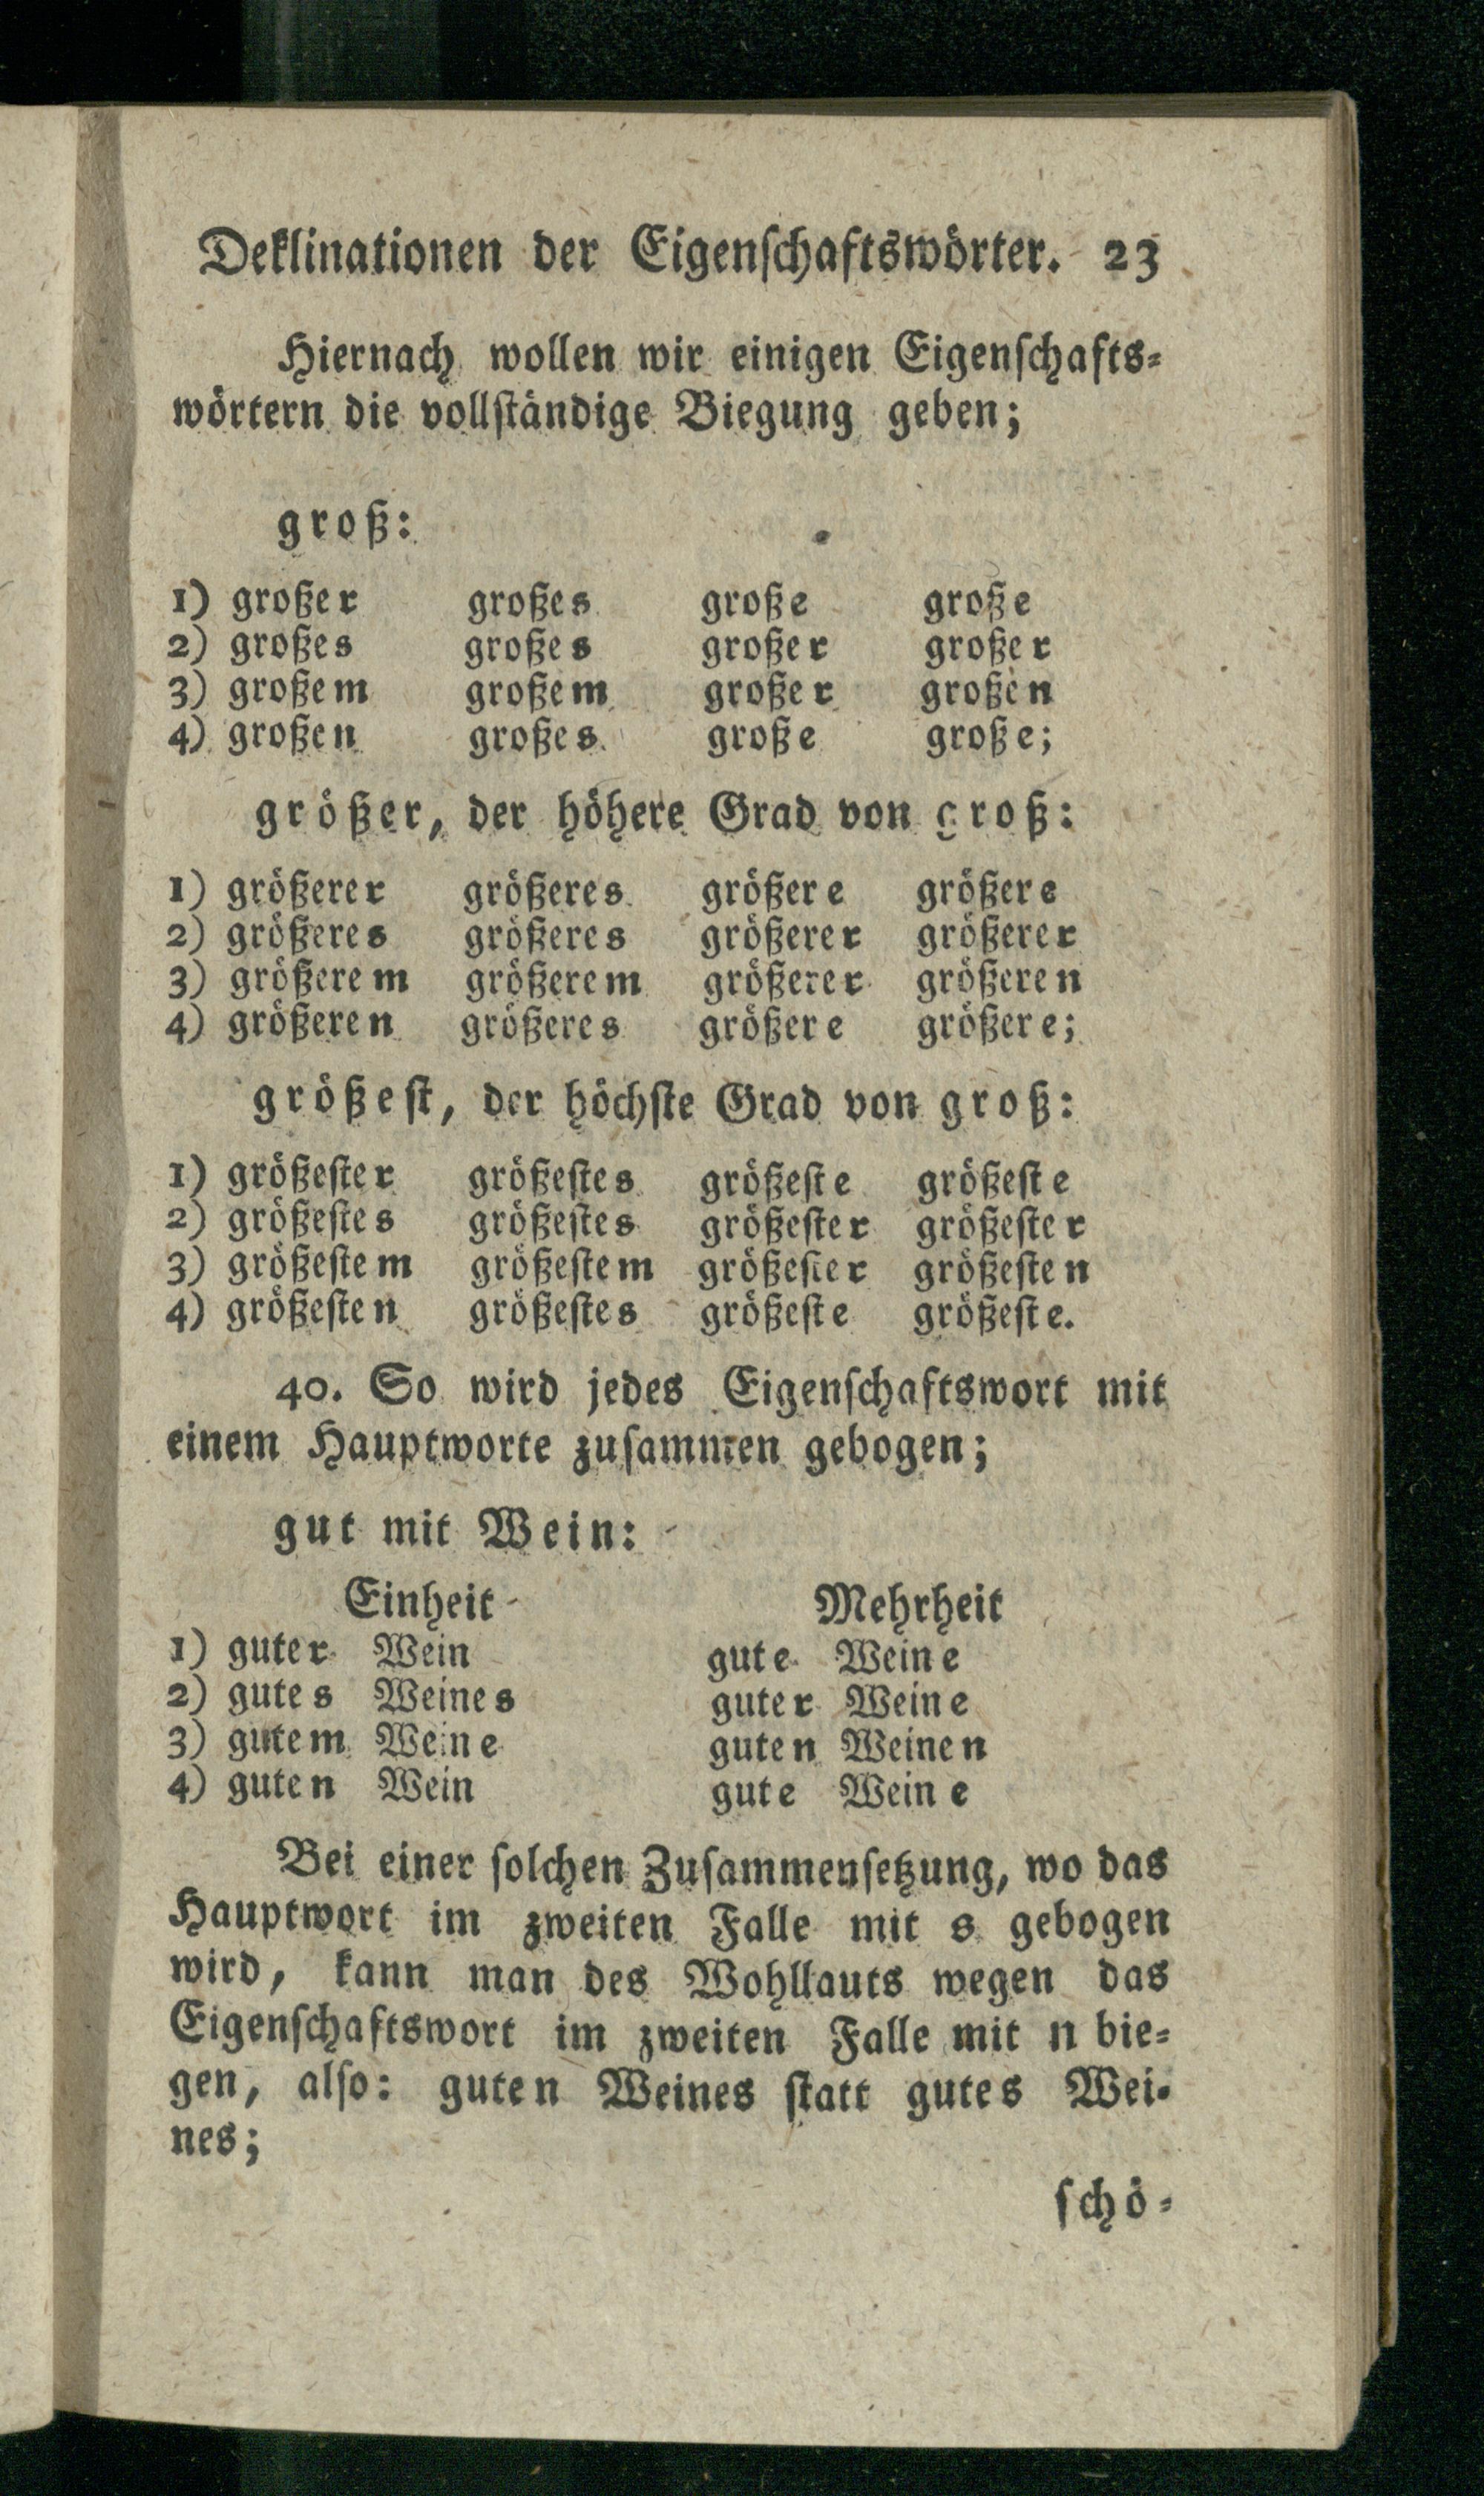 Deklinationen der Eigenſchaftswörter. 23
Hiernach wollen wir einigen Eigenſchafts⸗
wörtern die vollſtändige Biegung geben;
groß:
1) großer großes große große
2) großes großes großer großer
3) großem großem großer großen
4) großen großes große große;
größer, der höhere Grad von groß:
1) größerer größeres größere größere
2) größeres größeres größerer größerer
3) größerem größerem größerer größeren
4) größeren größeres größere größere;
größeſt, der höchſte Grad von groß:
1) größeſter größeſtes größeſte größeſte
2) größeſtes größeſtes größeſter größeſter
3) größeſtem größeſtem größeſter größeſten
4) größeſten größeſtes größeſte größeſte.
40. So wird jedes Eigenſchaftswort mit
einem Hauptworte zuſammen gebogen;
gut mit Wein:
Einheit Mehrheit
1) guter Wein gute Weine
2) gutes Weines guter Weine
3) gutem Weine guten Weinen
4) guten Wein gute Weine
Bei einer ſolchen Zuſammenſetzung, wo das
Hauptwort im zweiten Falle mit s gebogen
wird, kann man des Wohllauts wegen das
Eigenſchaftswort im zweiten Falle mit n bie⸗
gen, alſo: guten Weines ſtatt gutes Wei⸗
nes;
ſchö⸗